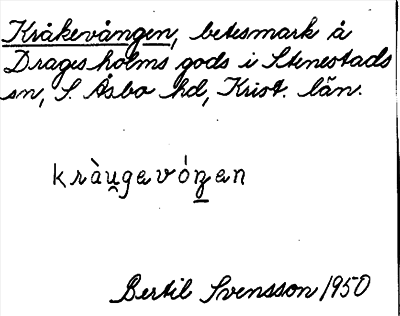 Kråkevången, betesmark å
Dragesholms gods i Stenestads
sn, S. Åsbo hd, Krist. län.
kràu̯gevóŋen
Bertil Svensson 1950